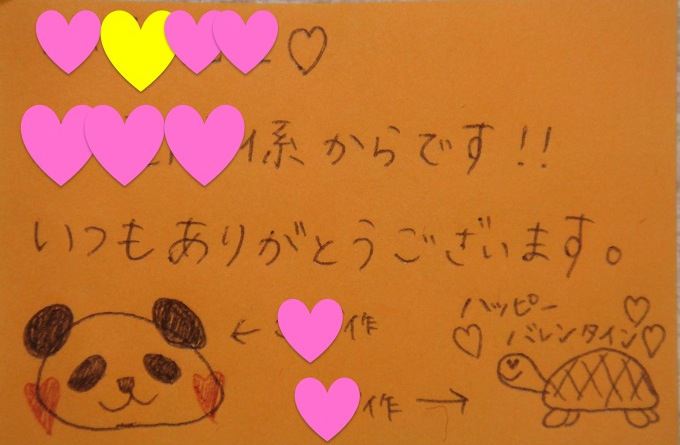 ♡
係からです!!
いつもありがとうございます。
← 作
作 →
ハッピー
バレンタイン